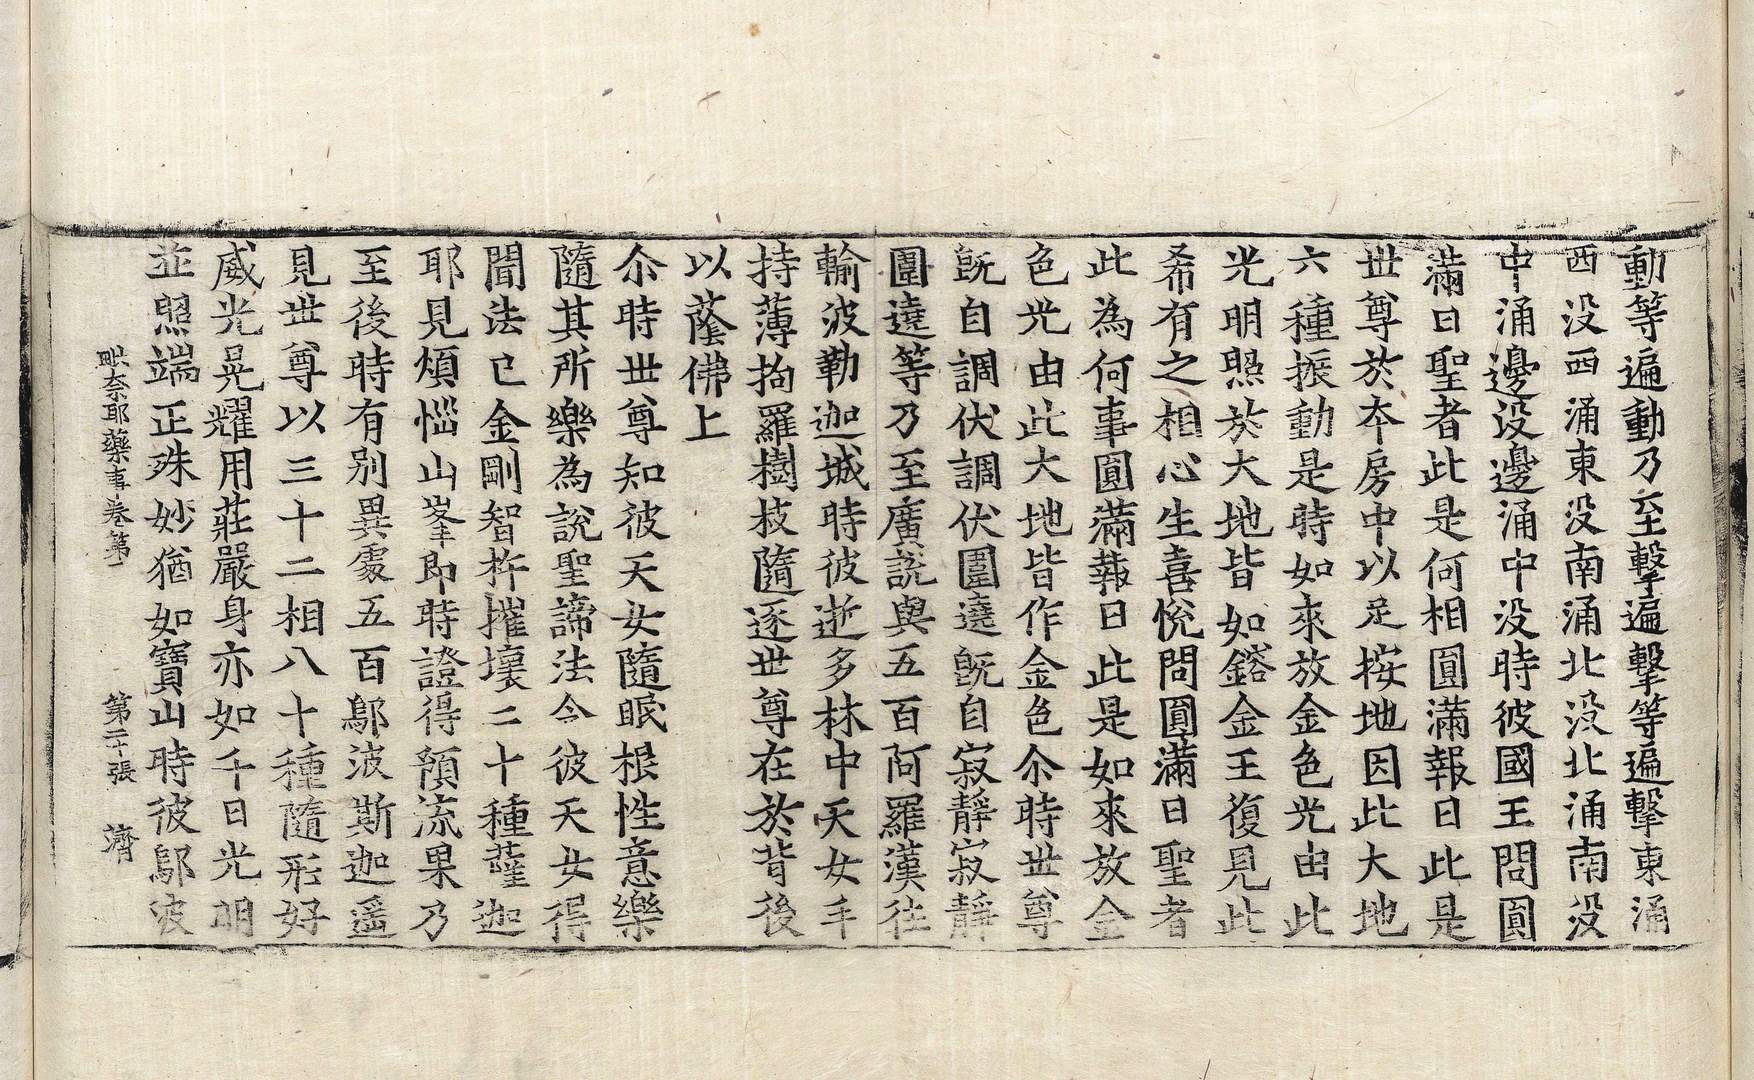 動等遍動乃至擊遍擊等遍擊東涌
西没西涌東没南涌北没北涌南没
中涌邊没邊涌中没時彼國王問圓
滿曰聖者此是何相圓滿報曰此是
世尊於本房中以足按地因此大地
六種振動是時如來放金色光由此
光明照於大地皆如鎔金王復見此
希有之相心生喜悅問圓滿曰聖者
此為何事圓滿報曰此是如來放金
色光由此大地皆作金色尒時世尊
旣自調伏調伏圍遶旣自寂靜寂靜
圍遶等乃至廣說與五百阿羅漢往
輸波勒迦城時彼逝多林中天女手
持薄拘羅樹枝隨逐世尊在於背後
以蔭佛上
尒時世尊知彼天女隨眠根性意樂
隨其所樂為說聖諦法令彼天女得
聞法已金剛智杵摧壞二十種薩迦
耶見煩惱山峯即時證得預流果乃
至後時有别異處五百鄔波斯迦遥
見世尊以三十二相八十種隨形好
威光晃耀用莊嚴身亦如千日光明
並照端正殊妙猶如寶山時彼鄔波
毗奈耶藥事卷第一　第二十張　濟